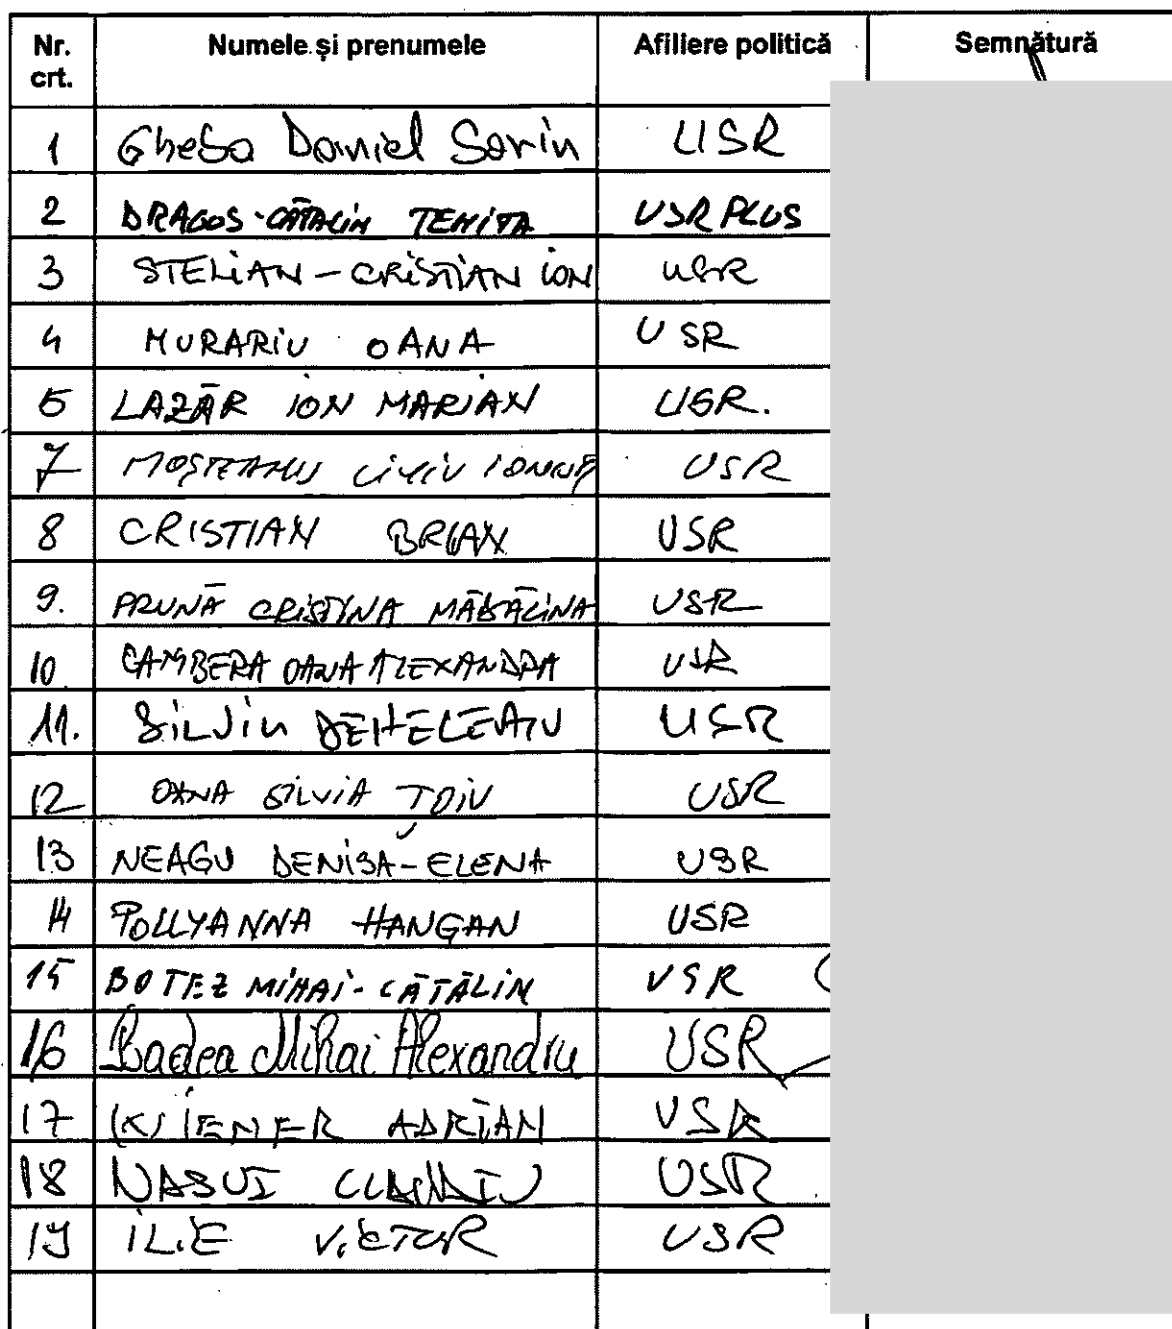 Nr. crt. Numele și prenumele Afiliere politică Semnătură
1 Gheba Daniel Sorin USR
2 DRAGOS-CĂTĂLIN TENIȚA USR PLUS
3 STELIAN-CRISTIAN ION USR
4 MURARIU OANA USR
5 LAZĂR ION MARIAN USR.
7 MOȘTEANU LIVIU IONUȚ USR
8 CRISTIAN BRIAN USR
9. PRUNĂ CRISTINA MĂDĂLINA USR
10. CAMBERA OANA ALEXANDRA USR
11. SILVIU DEHELEANU USR
12 OANA SILVIA ȚOIU USR
13 NEAGU DENISA-ELENA USR
14 POLLYANNA HANGAN USR
15 BOTEZ MIHAI-CĂTĂLIN USR
16 Badea Mihai Alexandru USR
17 WIENER ADRIAN USR
18 NASUI CLAUDIU USR
19 ILIE VICTOR USR